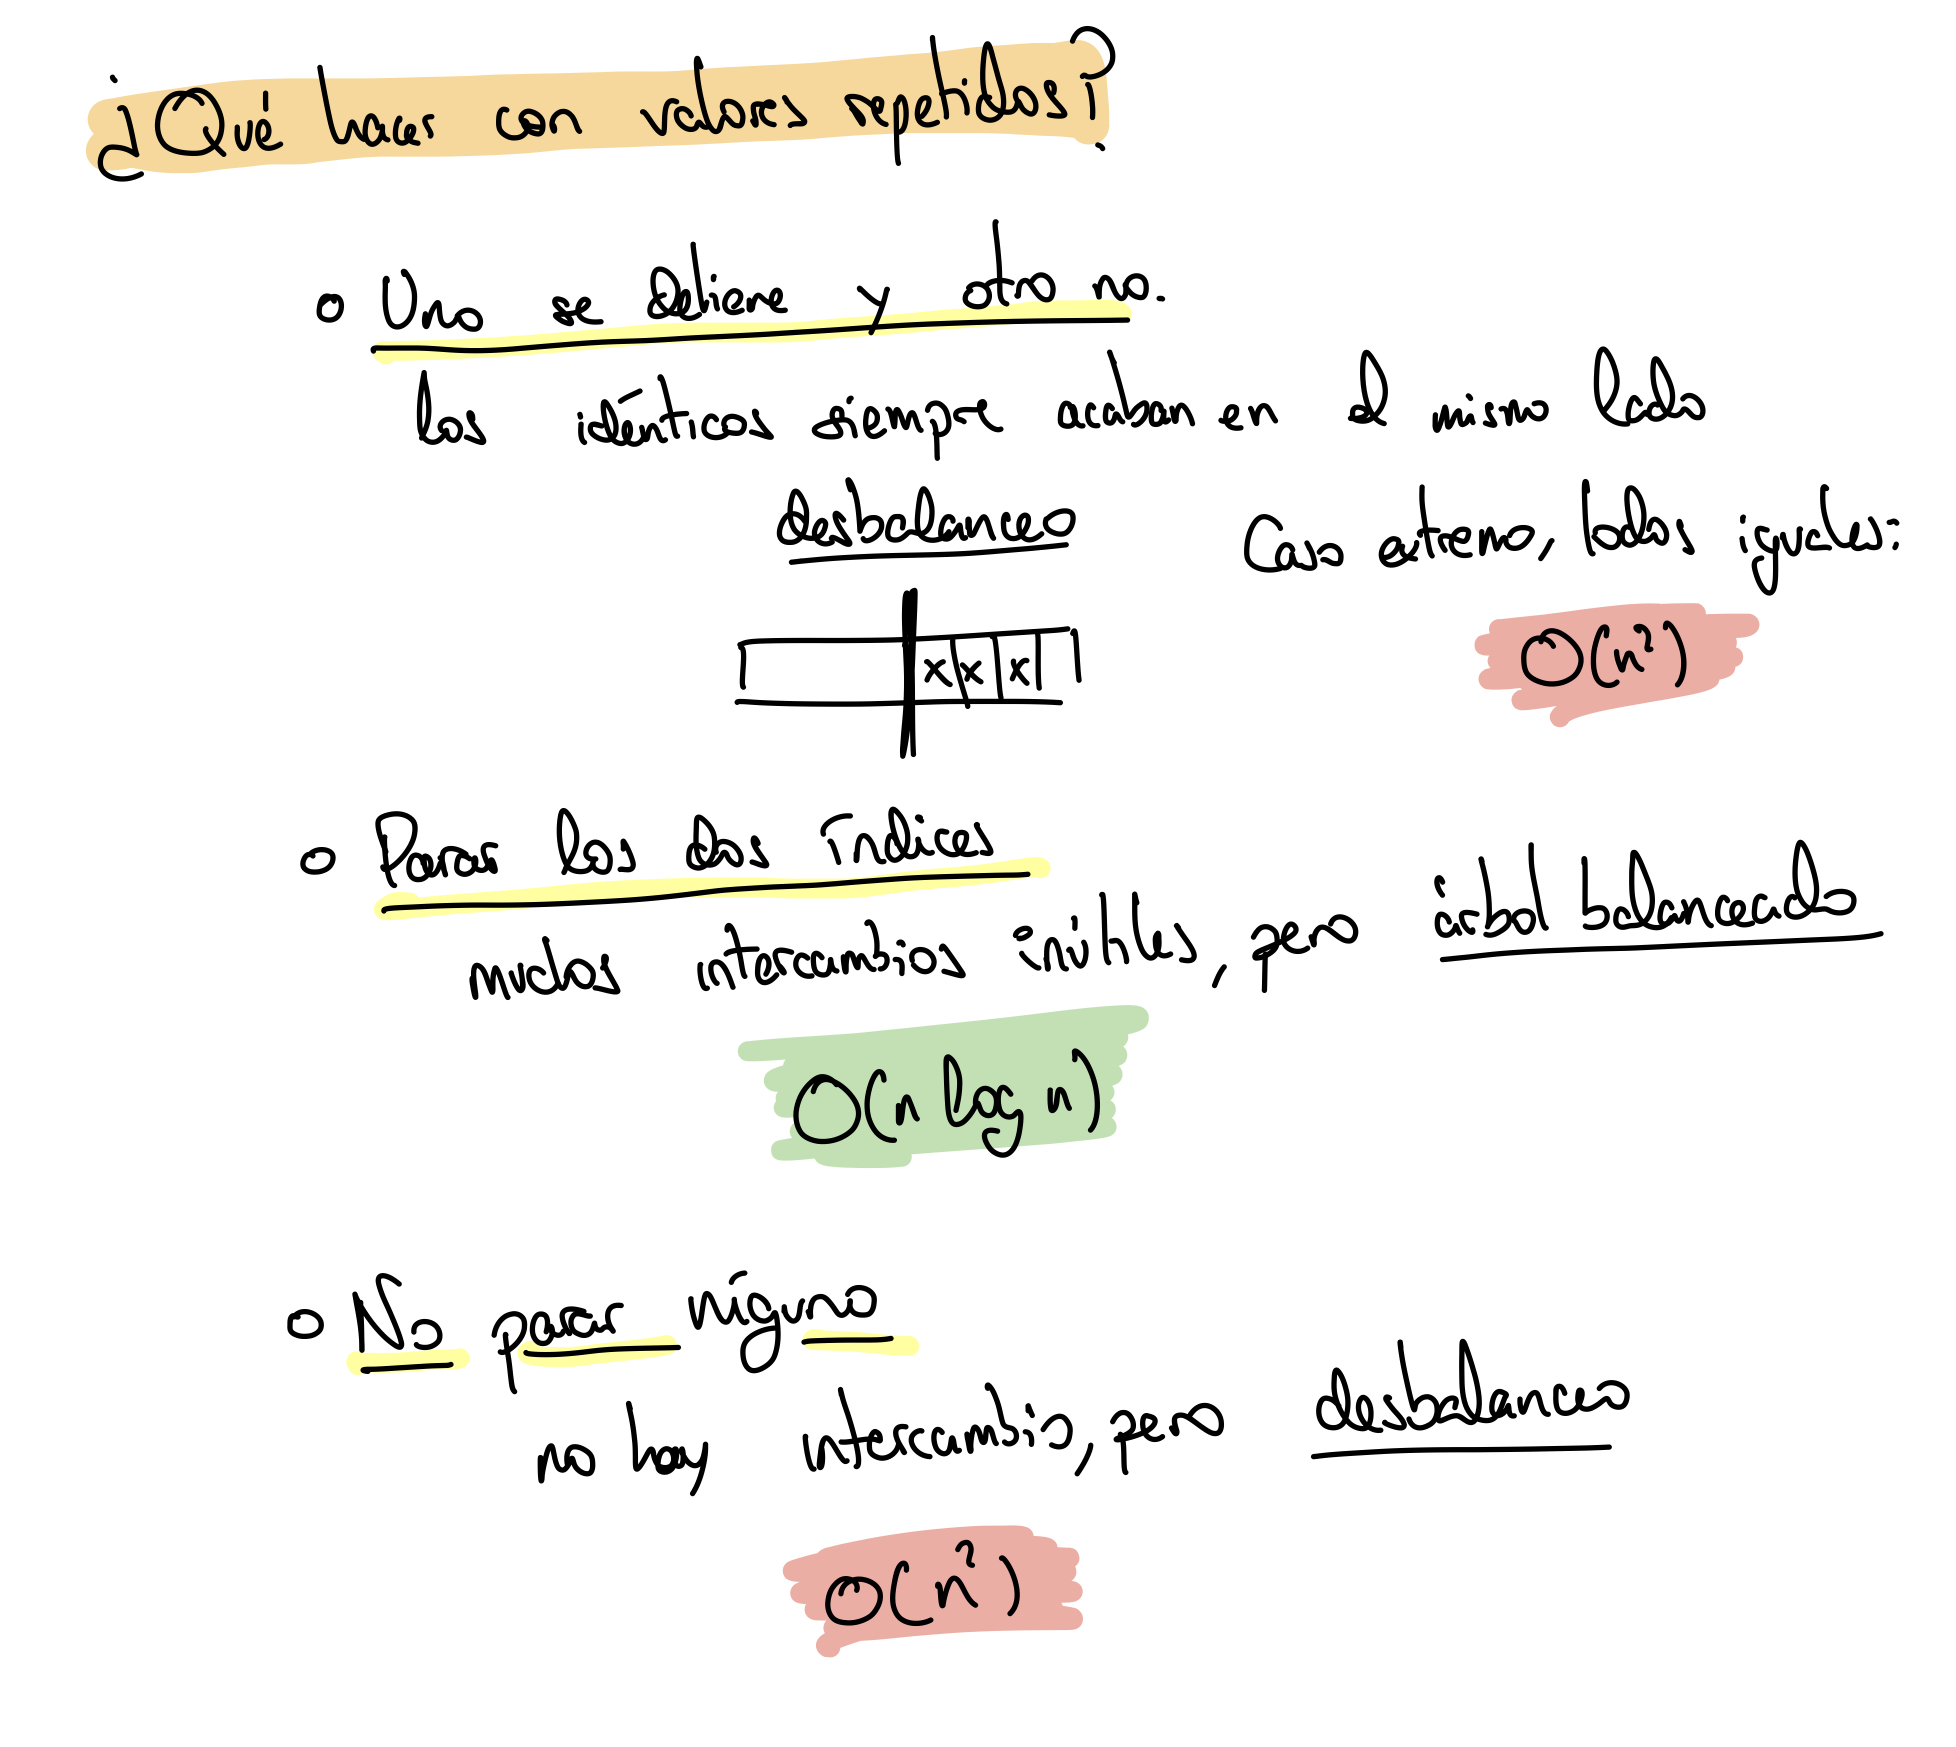 ¿Qué haces con valores repetidos?
o Uno se detiene y otro no.
los idénticos siempre acaban en el mismo lado
desbalanceo Caso extremo, todos iguales:
x x x O(n²)
o Paras los dos índices
muchos intercambios inútiles, pero árbol balanceado
O(n log n)
o No parar níguno
no hay intercambio, pero desbalanceo
O(n²)